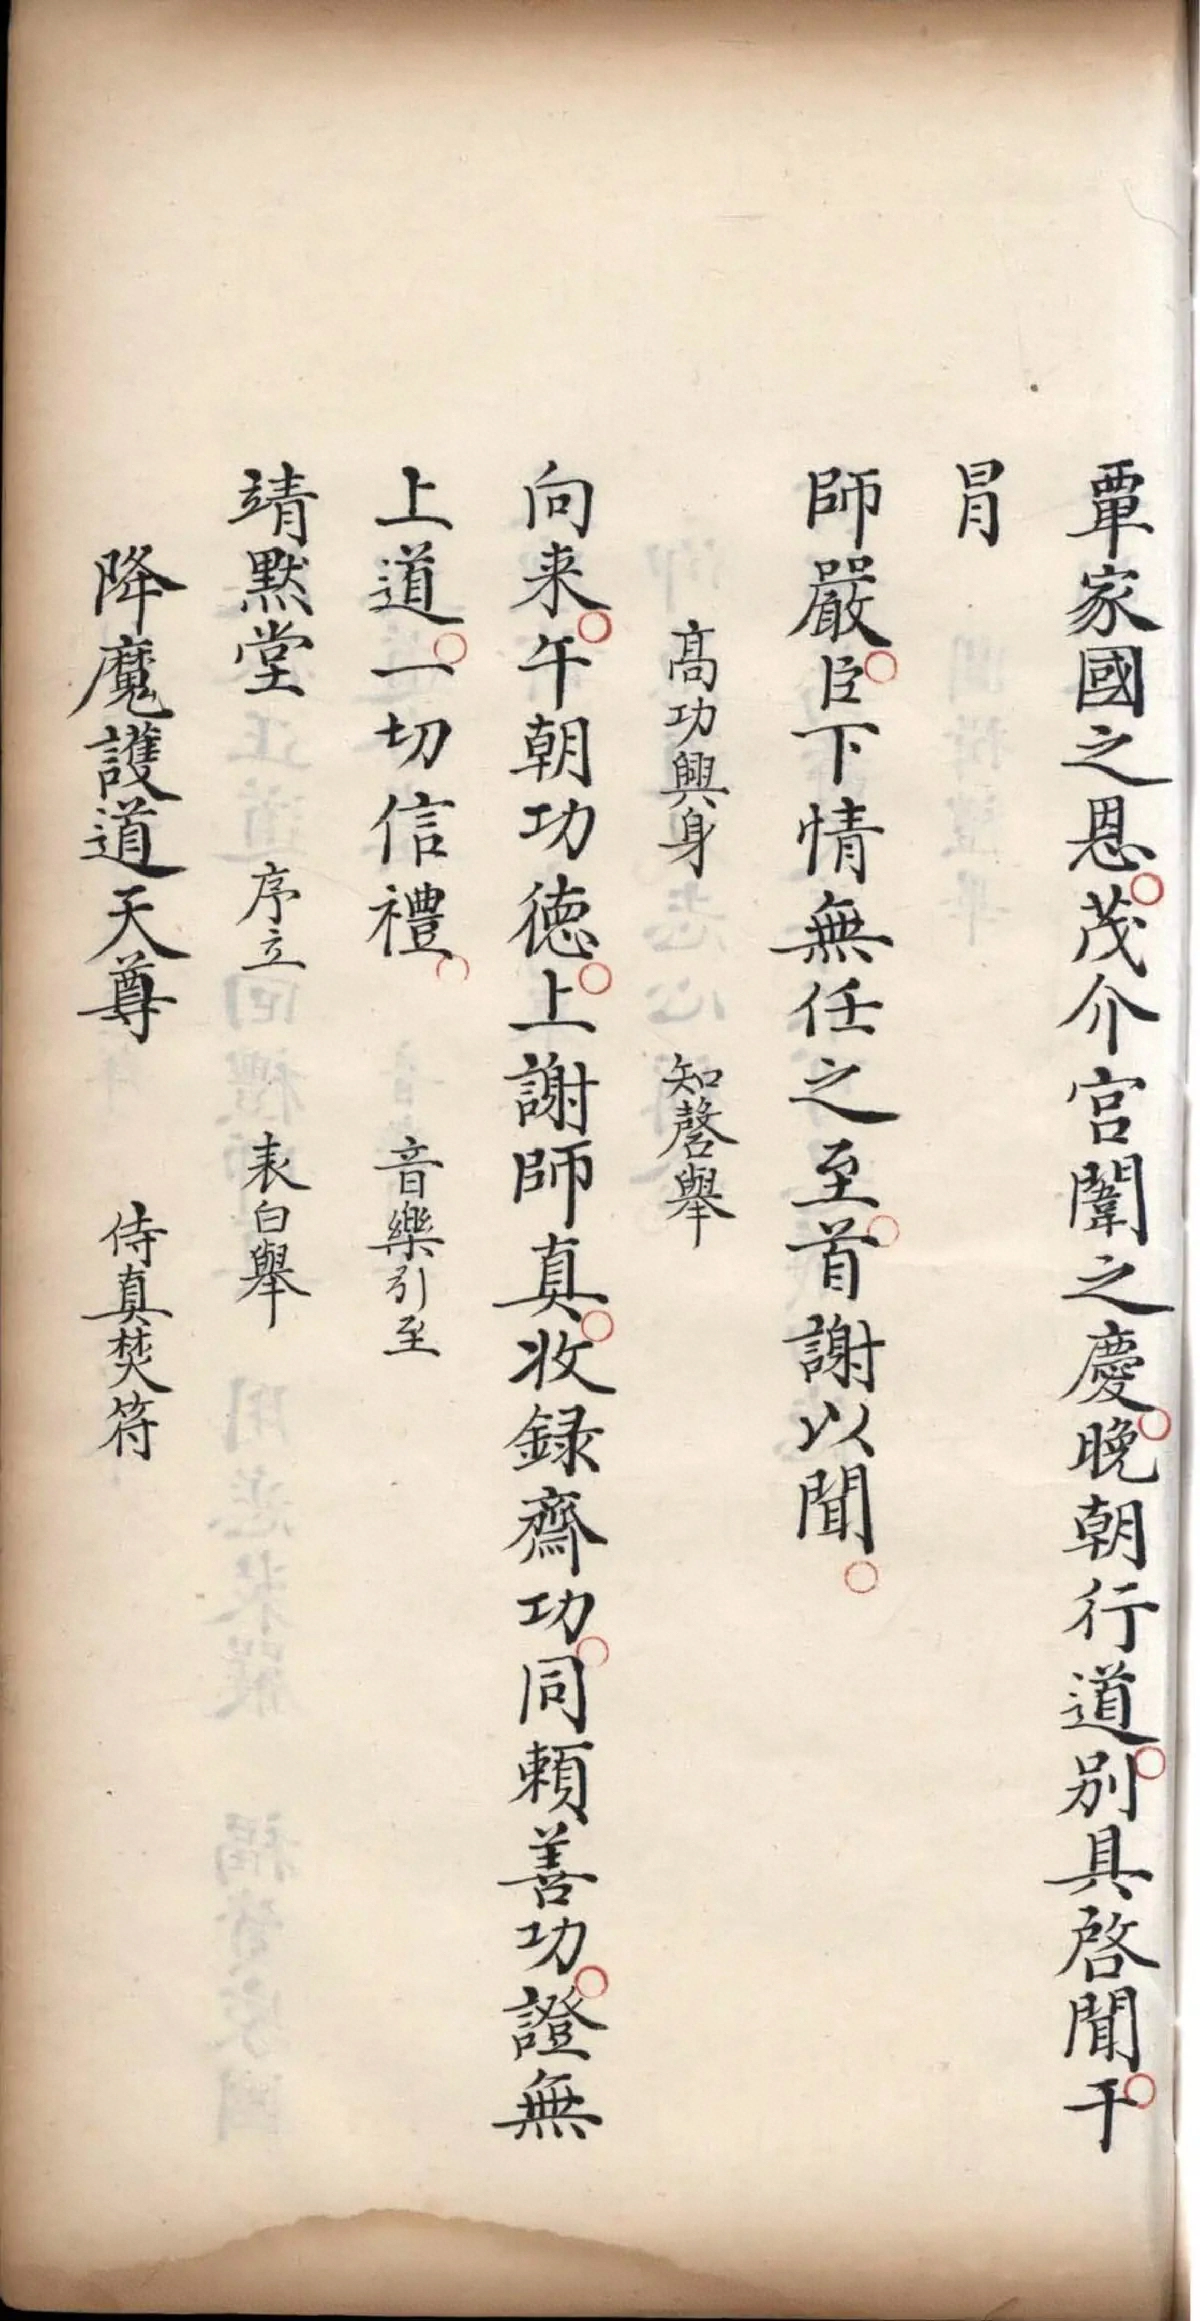 覃家國之恩○茂介宮闈之慶○晚朝行道○别具啓聞○干
冒
師嚴○臣下情無任之至○首謝以聞○
高功興身　知磬舉
向来○午朝功德○上謝師真○收録齋功○同賴善功○證無
上道○一切信禮○　音樂引至
靖默堂　序立　表白舉
降魔護道天尊　侍真焚符